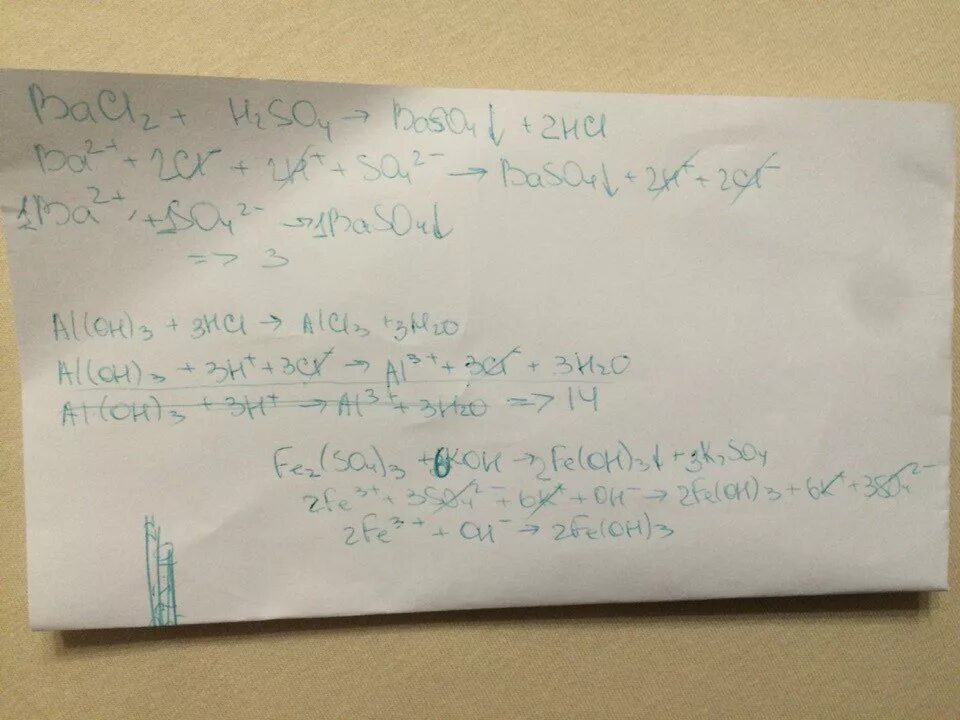 BaCl₂ + H₂SO₄ → BaSO₄↓ + 2HCl
Ba²⁺ + 2Cl⁻ + 2H⁺ + SO₄²⁻ → BaSO₄↓ + 2H⁺ + 2Cl⁻
1Ba²⁺ + 1SO₄²⁻ → 1BaSO₄↓
=> 3
Al(OH)₃ + 3HCl → AlCl₃ + 3H₂O
Al(OH)₃ + 3H⁺ + 3Cl⁻ → Al³⁺ + 3Cl⁻ + 3H₂O
Al(OH)₃ + 3H⁺ → Al³⁺ + 3H₂O => 14
Fe₂(SO₄)₃ + 6KOH → 2Fe(OH)₃↓ + 3K₂SO₄
2Fe³⁺ + 3SO₄²⁻ + 6K⁺ + OH⁻ → 2Fe(OH)₃ + 6K⁺ + 3SO₄²⁻
2Fe³⁺ + OH⁻ → 2Fe(OH)₃